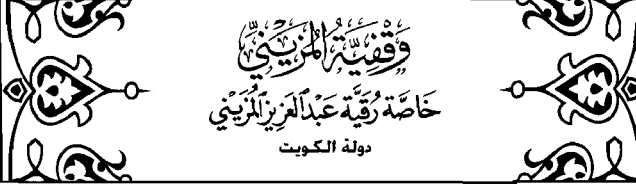 وَقْفِيَّةُ المُزَيْنِيِّ
خَاصَّة رُقَيَّة عَبْدُ العَزِيْزِ المُزَيْنِي
دولة الكويت